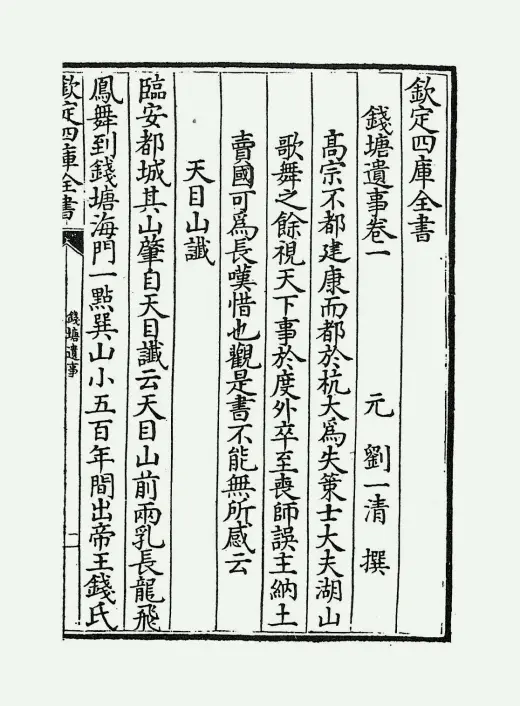 欽定四庫全書
錢塘遺事卷一
元 劉一清 撰
高宗不都建康而都於杭大為失策士大夫湖山
歌舞之餘視天下事於度外卒至喪師誤主納土
賣國可為長嘆惜也觀是書不能無所感云
天目山䜟
臨安都城其山肇自天目䜟云天目山前兩乳長龍飛
鳳舞到錢塘海門一點巽山小五百年間出帝王錢氏
欽定四庫全書
錢塘遺事
二